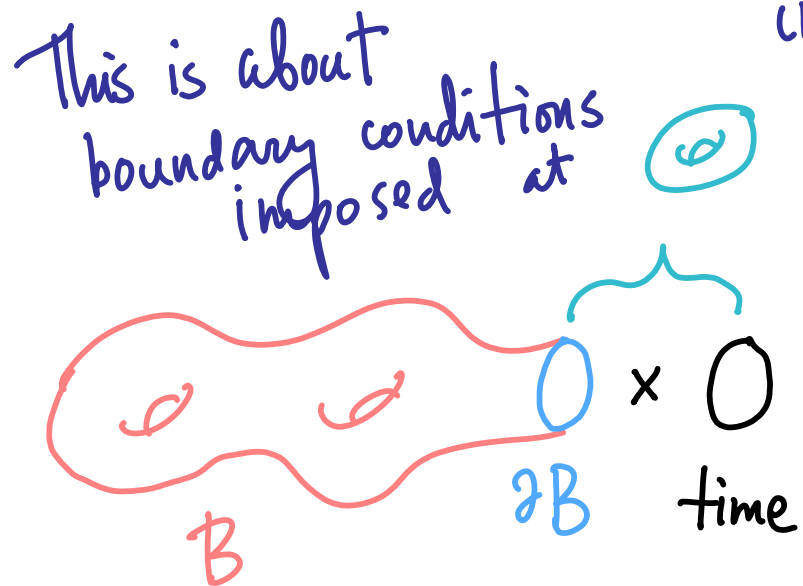 This is about
boundary conditions
imposed at
×
B
∂B
time